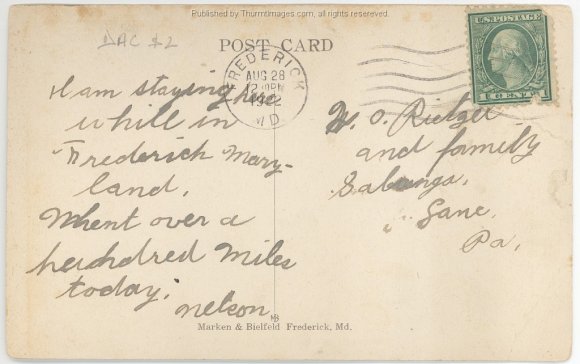 Published by ThurmtImages.com, all rights reserved.
DAC #2
POST CARD
U.S. POSTAGE
1 CENT 1
FREDERICK
AUG 28
12 PM
1922
MD
I am staying here
whill in
Frederich Mary-
land.
Whent over a
hundred Miles
today.
nelson
W. O.
and family
Lane.
Pa.
Marken & Bielfeld Frederick, Md.